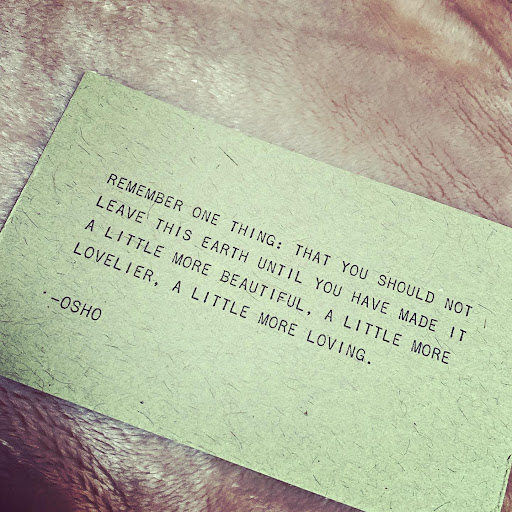 REMEMBER ONE THING: THAT YOU SHOULD NOT
LEAVE THIS EARTH UNTIL YOU HAVE MADE IT
A LITTLE MORE BEAUTIFUL, A LITTLE MORE
LOVELIER, A LITTLE MORE LOVING.
-OSHO